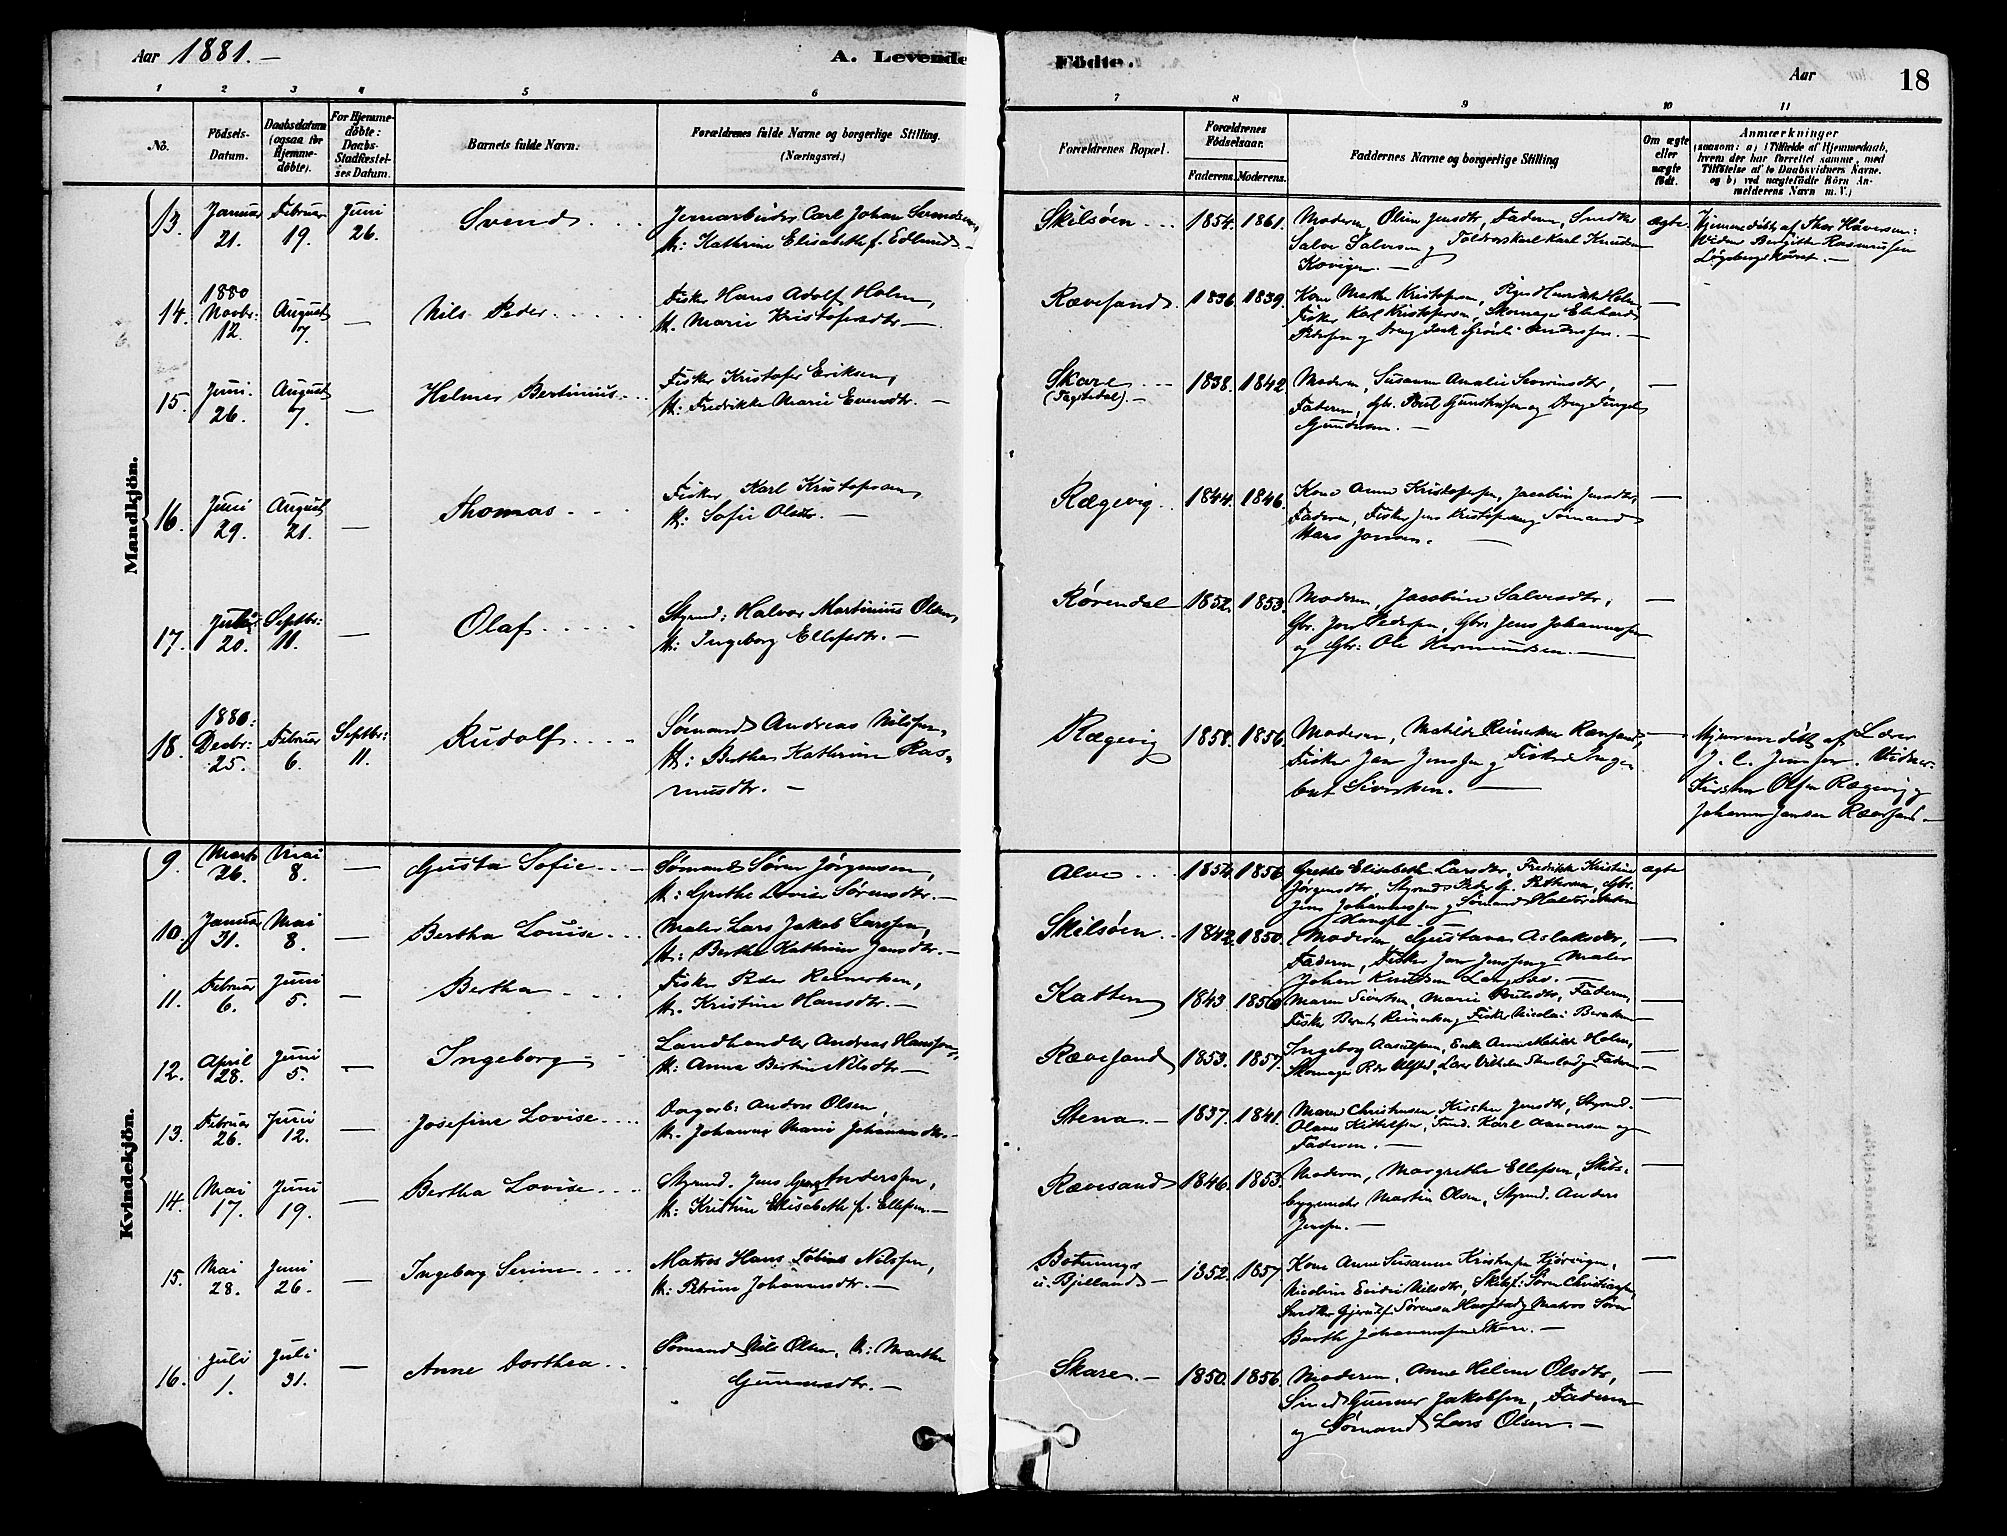 Aar 1881.- A. Levende Födte. Aar 18
1 2 3 4 5 6 7 8 9 10 11
No. Födsels-Datum. Daabsdatum (ogsaa for Hjemmedöbte). For Hjemmedöbte: Daabs-Stadfæstelses Datum. Barnets fulde Navn. Forældrenes fulde Navne og borgerlige Stilling. (Næringsvei.) Forældrenes Bopæl. Forældrenes Födselsaar. Faderens. Moderens. Faddernes Navne og borgerlige Stilling Om ægte eller uægte födt. Anmærkninger (saasom: a) i Tilfælde af Hjemmedaab, hvem der har forrettet samme, med Tilföielse af to Daabsvidners Navne. og b) ved uægtefödte Börn Anmelderens Navn m. V.)
Mandkjön.
13. Januar 21. Februar 19. Juni 26. Svend Jernarbeider Carl Johan Svendsen, H: Kathrine Elisabeth f. Edlund - Skilsøen 1854. 1861. Moderen, Oline Jensdtr, Faderen, Smedker Salve Salvesen og Toldvørskarl Karl Knudsen Kovigen. - ægte. Hjemmedöbt af Thor Håvorsen: Vidner Bergitte Rasmussen
14. 1880 Novbr: 12. August 7. - Nils Peder Fisker Hans Adolf Holm, H. Marie Kristofersdtr - Rævesand. 1836 1839. Kone Marthe Kristofersen, Fisker Karl Kristofersen, Skomager Eberhard Pedersen og -
15. Juni 26. August 7. - Helmer Bertinius Fisker Kristofer Eriksen, H: Fredrikke Marie Evensdtr. - Skare 1838. 1842 Moderen, Susanne Amalie Severinsdtr, Faderen, Gbr. Gundersen. -
16. Juni 29. August 21. - Thomas Fisker Karl Kristofersen, H: Sofie Olsdtr. - Rægevig 1844. 1846. Kone Anne Kristofersen, Jacobine Jensdtr, Faderen, Fisker Jens Kristofersen og Sømand Hans Jonsen. -
17. Juli 20. Septbr: 11. - Olaf Styrmd: Halvor Martinius Olsen, H: Ingeborg Ellefsdtr. - Rørendal 1852. 1853. Moderen, Jacobine Salvesdtr, Gbr. Jens Pedersen, Gbr. Jens Johannessen og Gbr: Ole Hermundsen. -
18. 1880: Decbr: 25. Februar 6. Septbr: 11. Rudolf Sømand Andreas Nilsen, H: Berthe Kathrine Rasmusdtr. - Rægevig 1858. 1856. Moderen, Matilde Reinertsen Rævesand, Fisker Jens Jenssen og Fisker Ingebret Sivertsen. - Hjemmedöbt af Lærer J. C. Jenssen. Vidner: Kirstine Olsen Rægevig og Johanne Jensen Rævesand -
Kvindekjön.
9. Marts 26. Mai 8. - Gusta Sofie Sømand Søren Jørgensen, H: Grethe Lovise Sørensdtr. - Alve 1854. 1856. Grethe Elisabeth Larsdtr, Fredrikke Kristine Jørgensdtr, Styrmd Peder G. Pettersen, Gbr. Jens Johannessen og Sømand Hansen - ægte
10. Januar 31. Mai 8. - Bertha Louise Maler Lars Jakob Larssen, H. Berthe Kathrine Jensdtr. - Skilsøen 1842 1850. Moderen Gustava Aslaksdtr, Faderen, Fisker Jens Jenssen og Maler Johan Knudsen Langsæ. -
11. Februar 6. Juni 5. - Bertha Fisker Peder Reinertsen, H. Kristine Hansdtr. - Katten 1843 1850 Maren Sivertsen, Marie Poulsdtr, Faderen, Fisker Bernt Reinertsen og Fisker Nicolai Berntsen -
12. April 28. Juni 5. - Ingeborg Landhandler Andreas Hanssen, H: Anna Bertine Nilsdtr - Rævesand 1853. 1857. Ingeborg Aanulfsen, Enke Anne Matilde Holm, Skomager Peder Ulfsted, Lærer Vilhelm Stensland og Faderen -
13. Februar 26. Juni 12. - Josefine Lovise Dagarb: Anders Olsen, H. Johanne Marie Johannesdtr. - Stena - 1837. 1841. Maren Christensen, Kirsten Jensdtr, Styrmd. Olaves Kittelsen, Tmd. Karl Aanonsen og Faderen. -
14. Mai 17. Juni 19. - Bertha Lovise Styrmd. Jens Anderssen, H: Kristine Elisabeth f. Ellefsen. - Rævesand 1846. 1853. Moderen, Margrethe Ellefsen, Skibsbygmester Martin Olsen, Styrmd. Anders Jenssen. -
15. Mai 28. Juni 26. - Ingeborg Serine Matros Hans Tobias Nilssen, H: Petrine Johannesdtr. - Botnings u. Bjelland - 1852. 1857 Kone Anne Susanne Kristensen Kjørvigen, Nicoline Nilsdtr, Skibsf: Søren Christiansen, Smedker Gjerulf Sørensen Havstad og Matros Søren Barth Johannessen Skare. -
16. Juli 1. Juli 31. - Anne Dorthea Sømand Nils Olsen, H: Marthe Gunnersdtr. - Skare. - 1850. 1856. Moderen, Anne Helene Olsdtr, Smed Gunner Jakobsen, Faderen og Sømand Lars Olsen. -